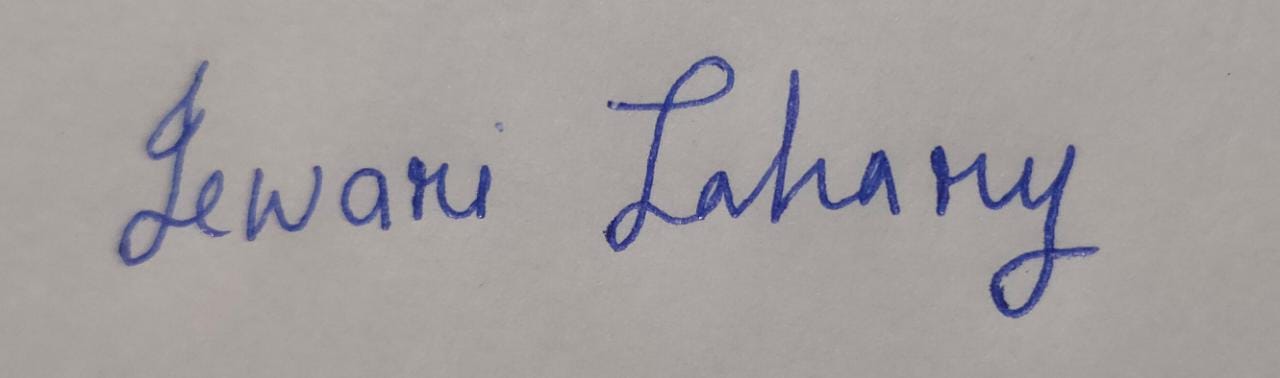 Jewari Lahary